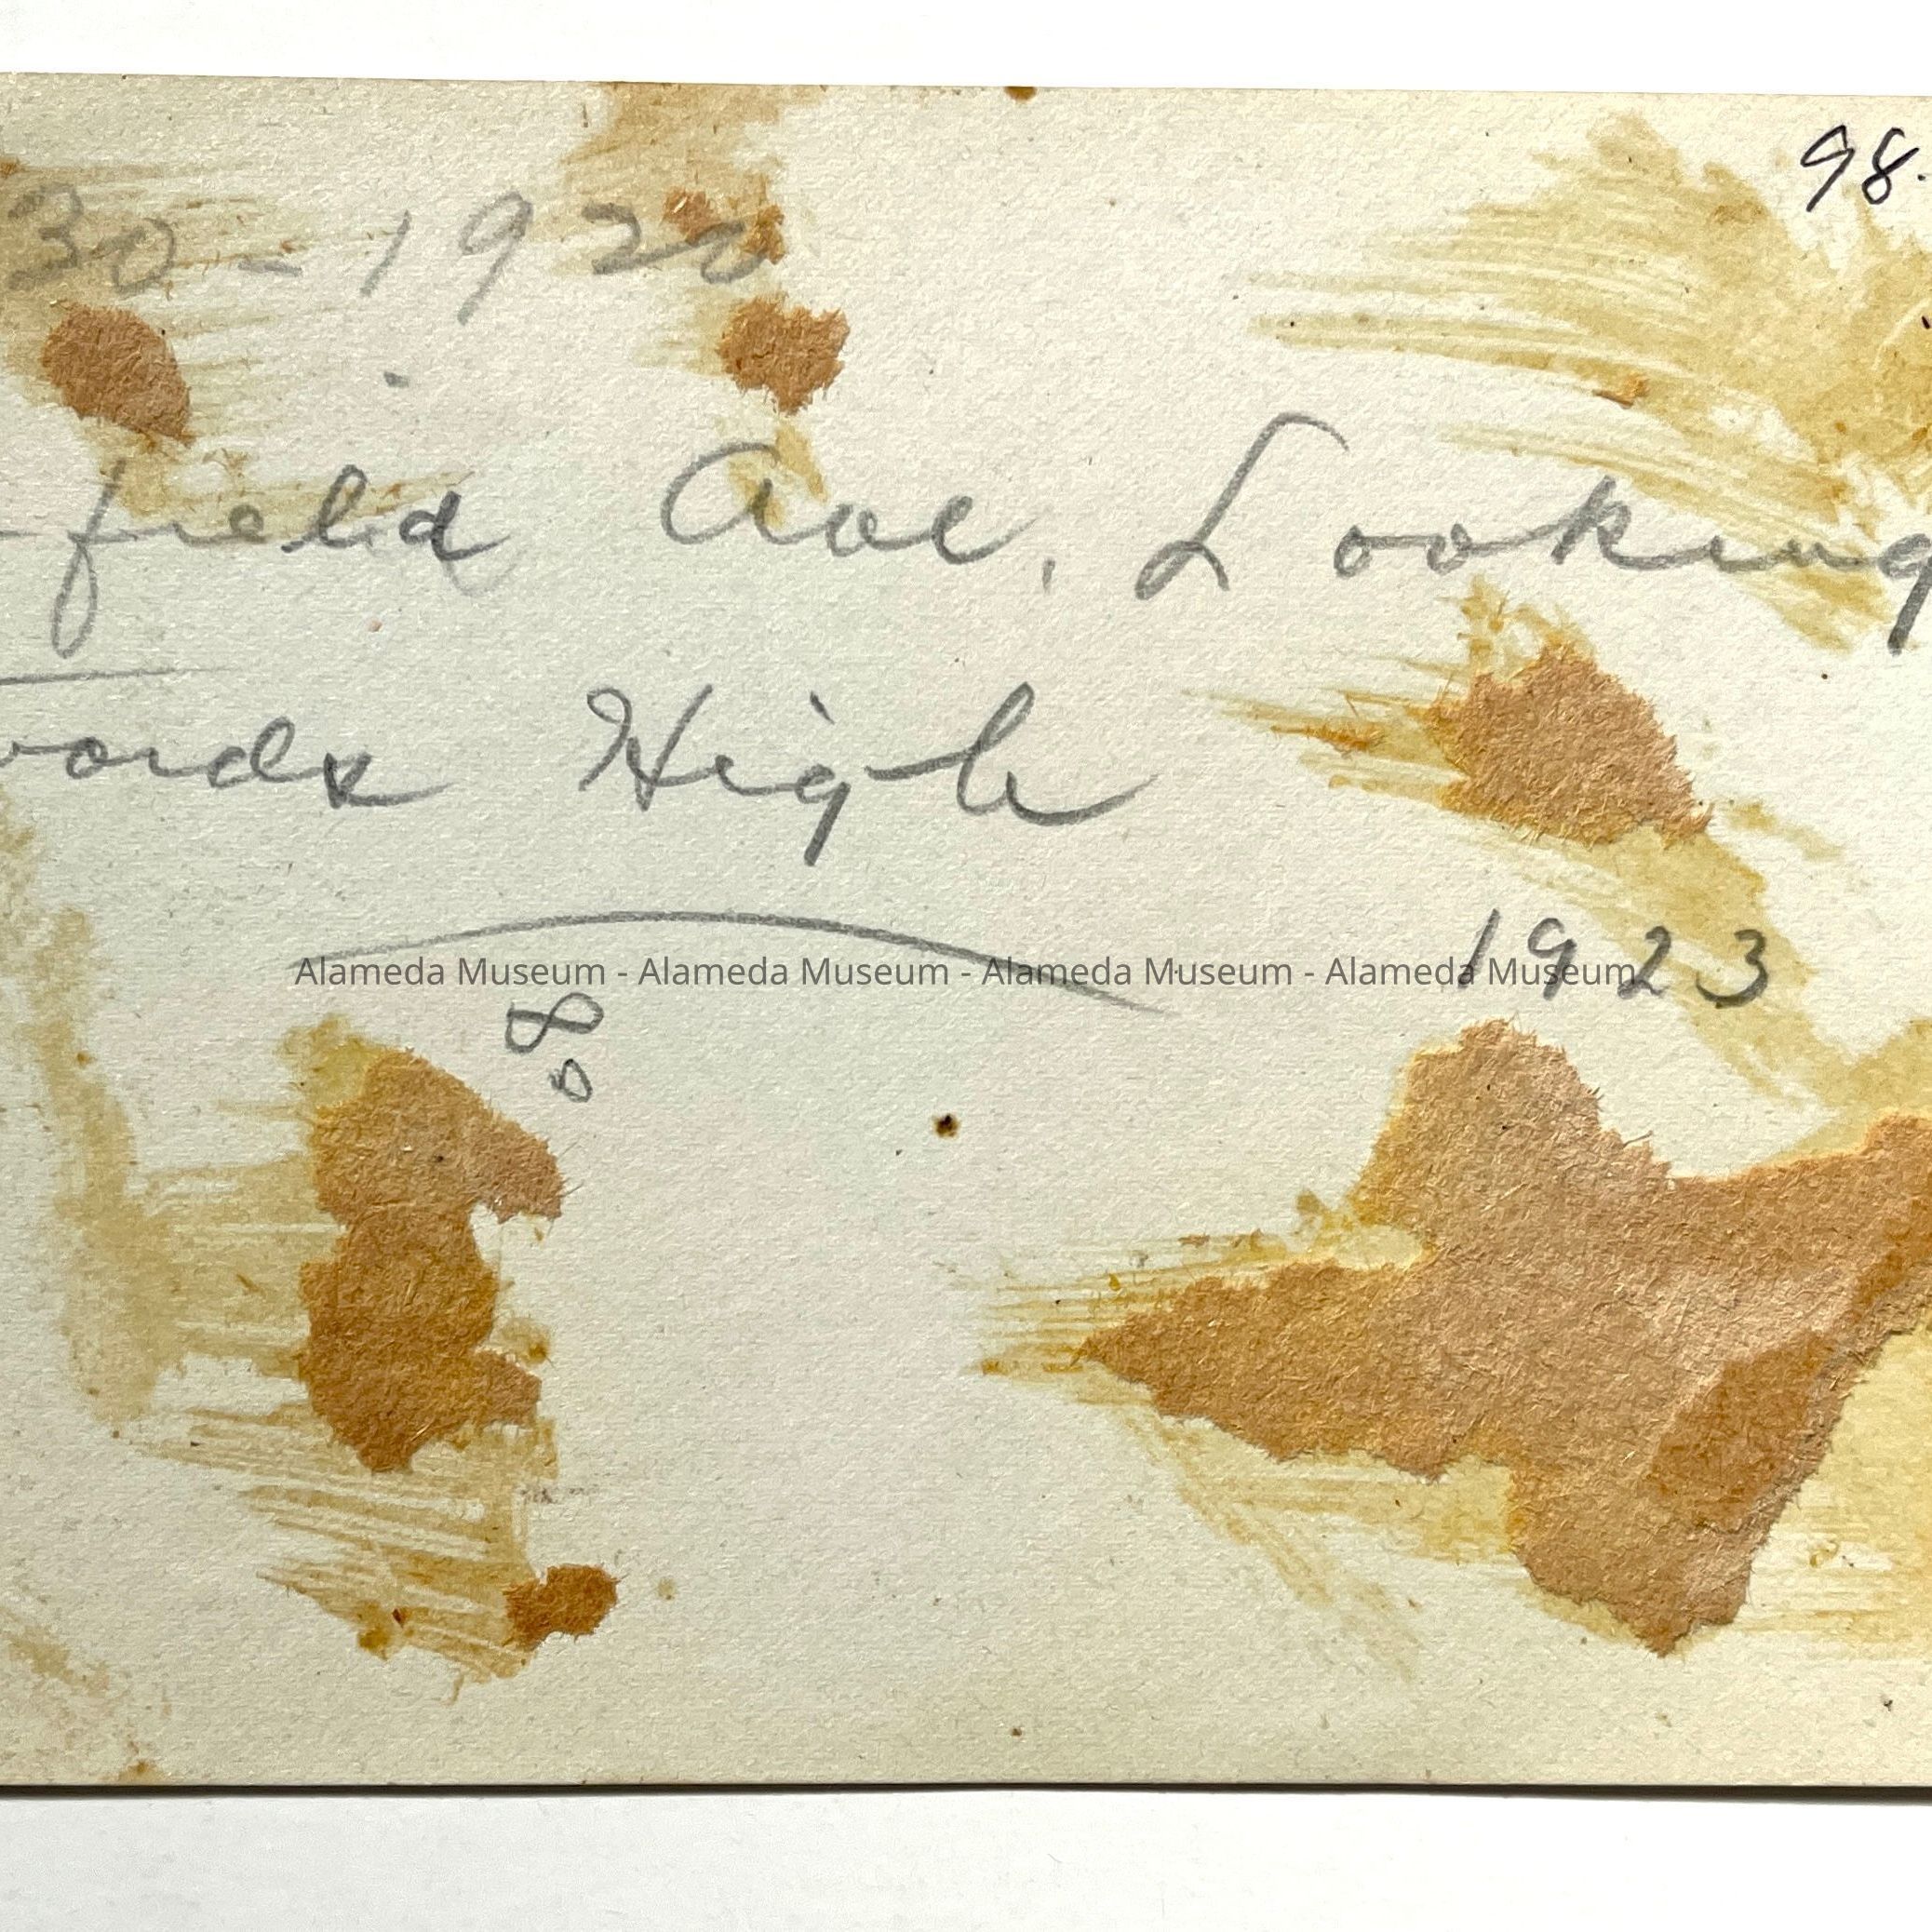 98.
30-1920
field Ave, Looking
wards High
1923
80
Alameda Museum - Alameda Museum - Alameda Museum - Alameda Museum